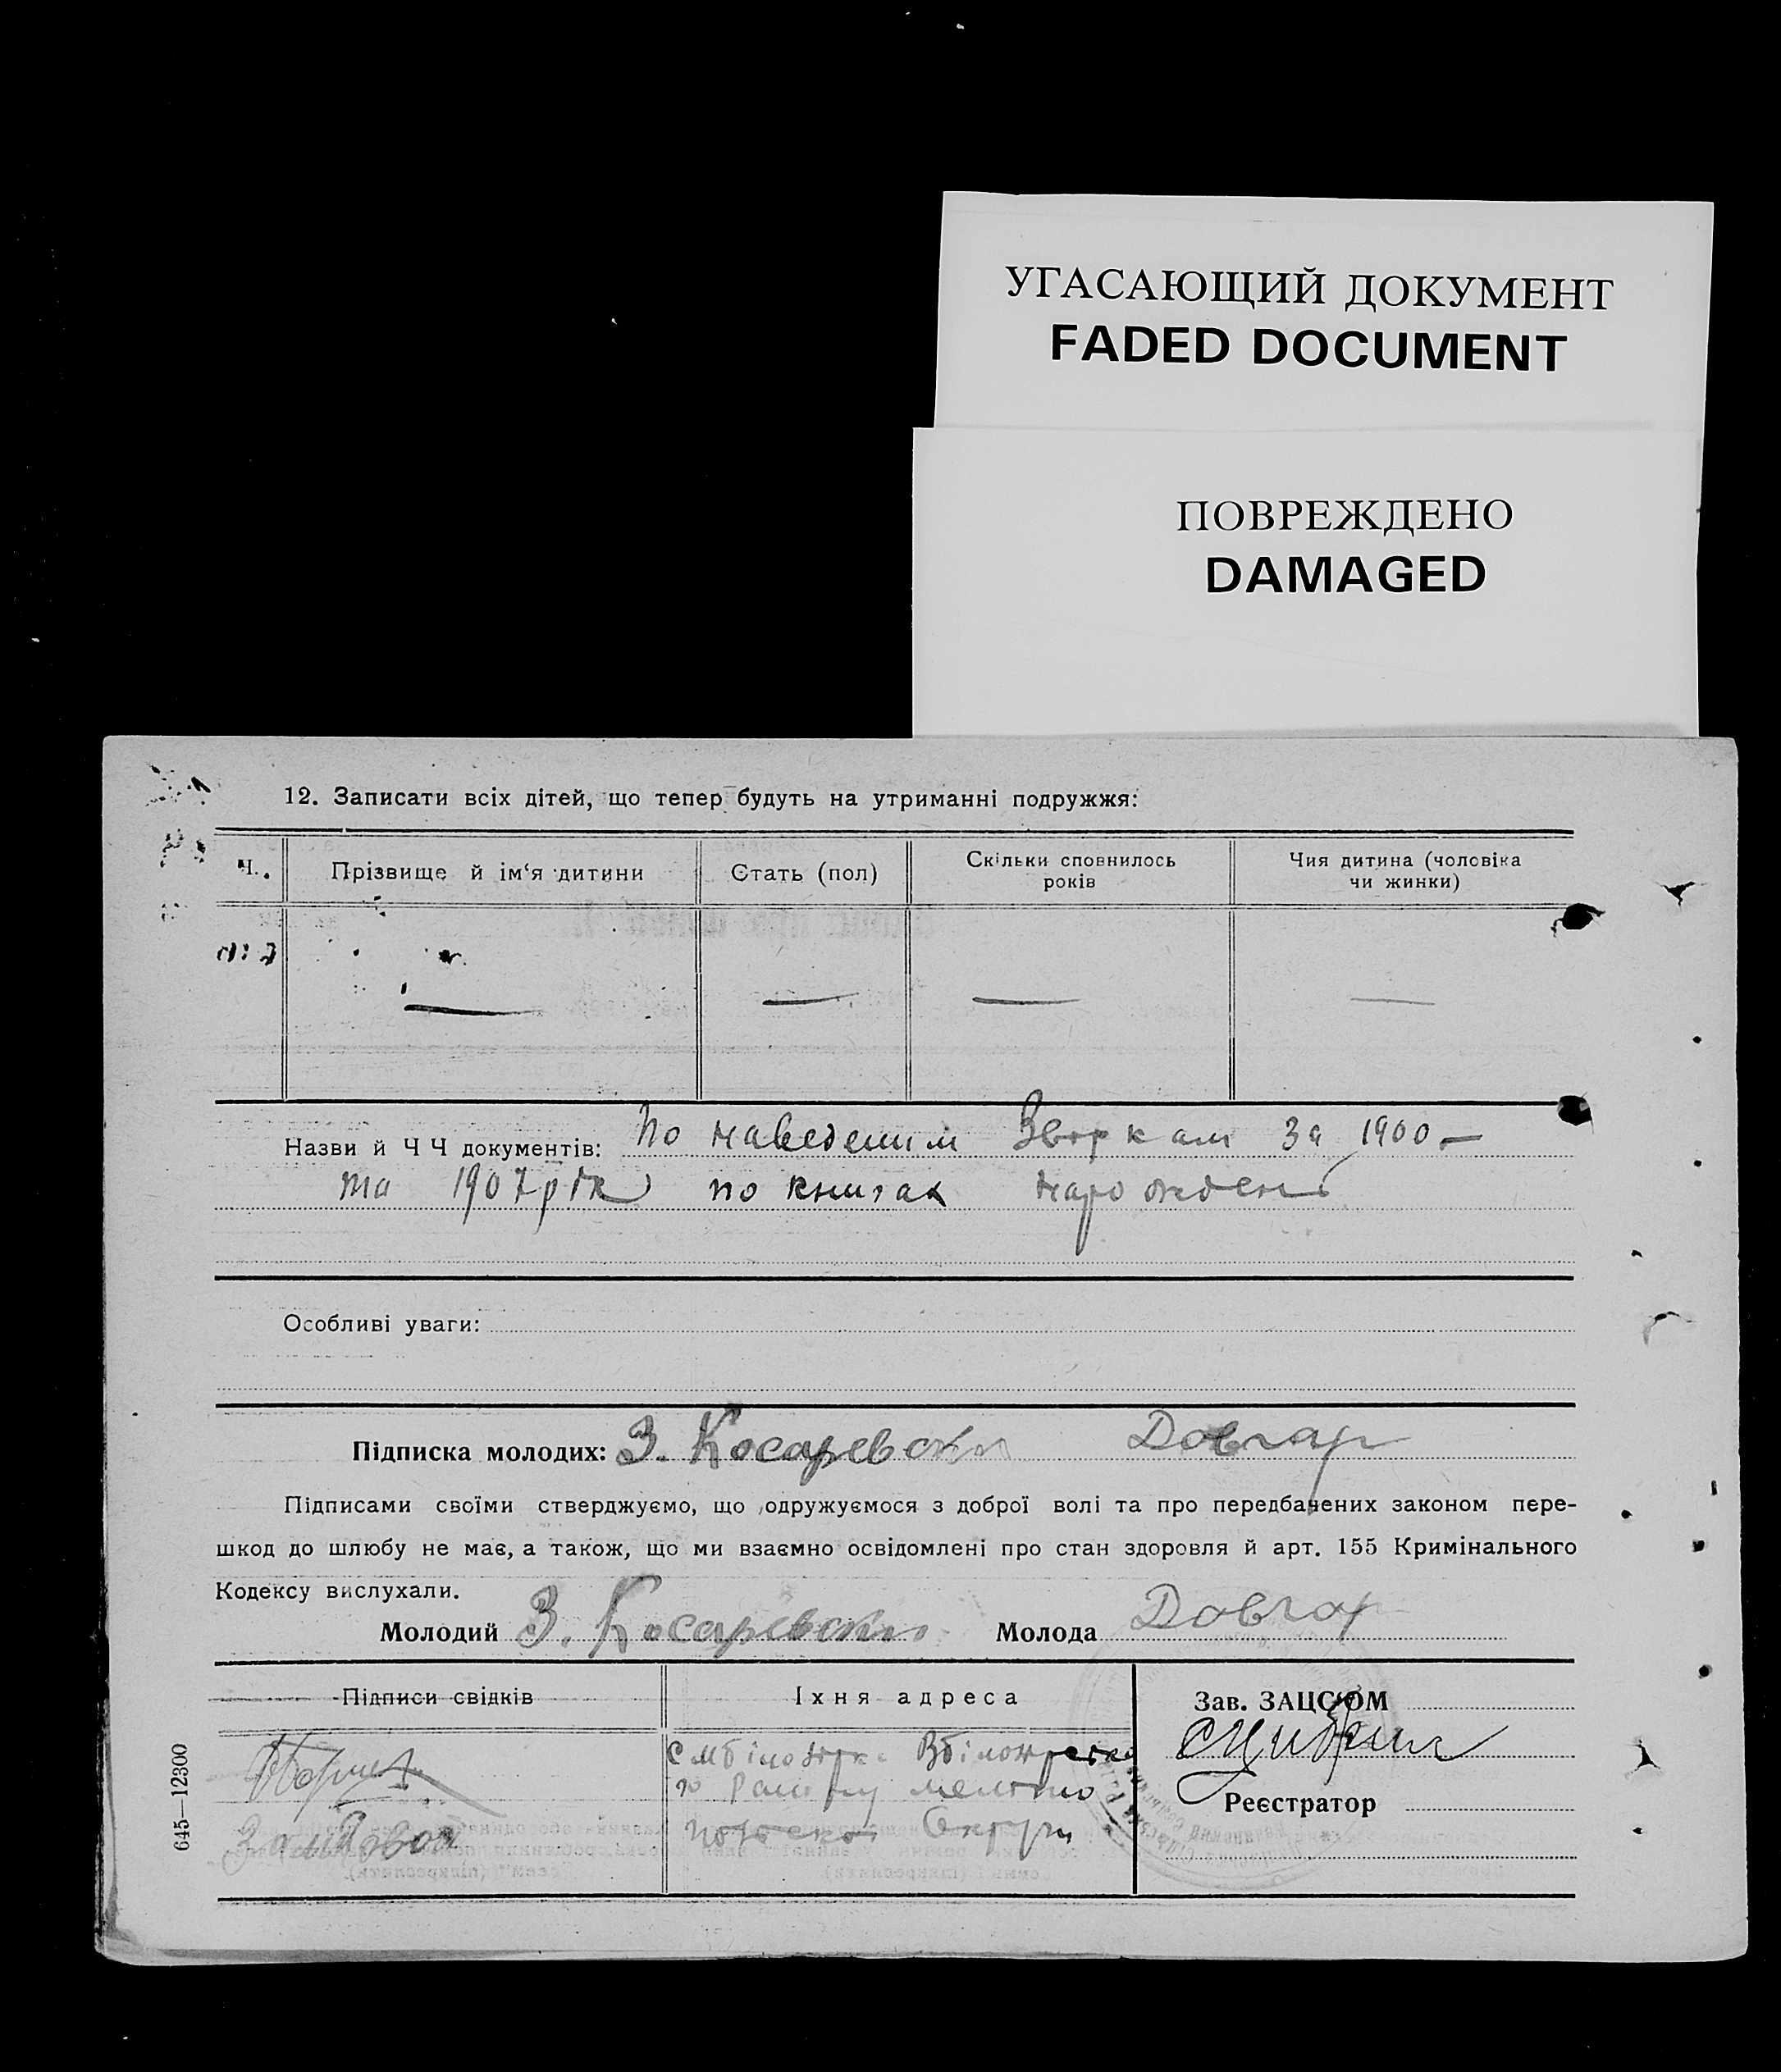 УГАСАЮЩИЙ ДОКУМЕНТ
FADED DOCUMENT
ПОВРЕЖДЕНО
DAMAGED
12. Записати всіх дітей, що тепер будуть на утриманні подружжя:
Ч.
Прізвище й ім‘я дитини
Стать (пол)
Скільки сповнилось
років
Чия дитина (чоловіка
чи жинки)
Назви й Ч Ч документів: По наведеним за 1900 —
та 1907 рік по книгах народжень
Особливі уваги:
Підписка молодих: З. Косаревски Довгар
Підписами своїми стверджуємо, що одружуємося з доброї волі та про передбачених законом пере-
шкод до шлюбу не має, а також, що ми взаємно освідомлені про стан здоровля й арт. 155 Кримінального
Кодексу вислухали.
Молодий З. Косаревски Молода Довгар
Підписи свідків
Їхня адреса
Зав. ЗАЦС‘ОМ
Району
Округи
Реєстратор
645—12300